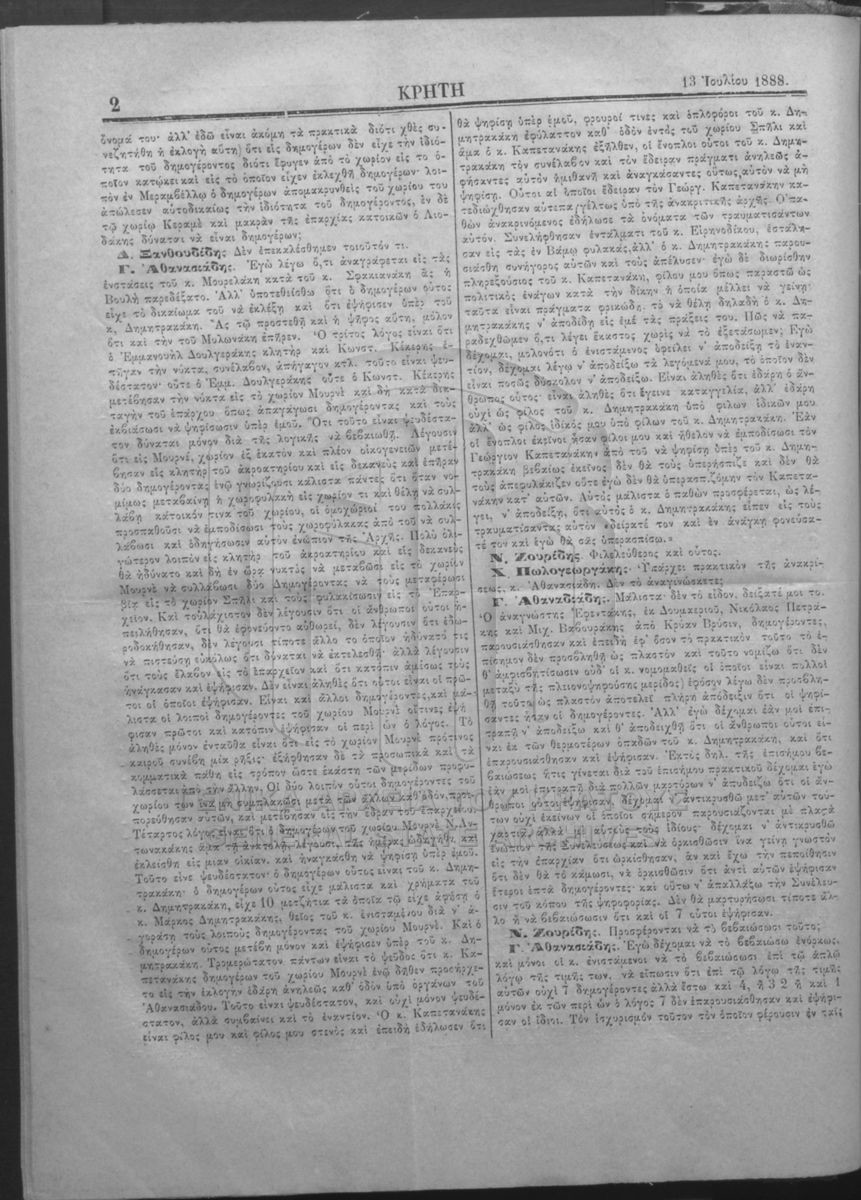 2
ΚΡΗΤΗ
13 Ἰουλίου 1888.
ὄνομά του· ἀλλ' ἐδῶ εἶναι ἀκόμη τὰ πρακτικὰ διότι χθὲς συ-
νεζητήθη ἡ ἐκλογὴ αὕτη) ὅτι εἰς δημογέρων δὲν εἶχε τὴν ἰδιό-
τητα τοῦ δημογέροντος διότι ἔφυγεν ἀπὸ τὸ χωρίον εἰς τὸ ὁ-
ποῖον κατῴκει καὶ εἰς τὸ ὁποῖον εἶχεν ἐκλεχθῆ δημογέρων· λοι-
πὸν ἐν Μεραμβέλλῳ ὁ δημογέρων ἀπομακρυνθεὶς τοῦ χωρίου του
ἀπώλεσεν αὐτοδικαίως τὴν ἰδιότητα τοῦ δημογέροντος, ἐν δὲ
τῷ χωρίῳ Κεραμὲ καὶ μακρὰν τῆς ἐπαρχίας κατοικῶν ὁ Λιο-
δάκης δύναται νὰ εἶναι δημογέρων;
Α. Ξανθουδίδης. Δὲν ἐπεκαλέσθημεν τοιοῦτόν τι.
Γ. Ἀθανασιάδης. Ἐγὼ λέγω ὅ,τι ἀναγράφεται εἰς τὰς
ἐνστάσεις τοῦ κ. Μουρελάκη κατὰ τοῦ κ. Σφακιανάκη ἃς ἡ
Βουλὴ παρεδέξατο. Ἀλλ' ὑποτεθείσθω ὅτι ὁ δημογέρων οὗτος
εἶχε τὸ δικαίωμα τοῦ νὰ ἐκλέξῃ καὶ ὅτι ἐψήφισεν ὑπὲρ τοῦ
κ. Δημητρακάκη. Ἂς τῷ προστεθῇ καὶ ἡ ψῆφος αὕτη, μόλον
ὅτι καὶ τὴν τοῦ Μολωνάκη ἐπῆρεν. Ὁ τρίτος λόγος εἶναι ὅτι
ὁ Ἐμμανουὴλ Δουλγεράκης κλητὴρ καὶ Κωνστ. Κέκερης ἐ-
πῆγαν τὴν νύκτα, συνέλαβον, ἀπήγαγον κτλ. τοῦτο εἶναι ψευ-
δέστατον· οὔτε ὁ Ἐμμ. Δουλγεράκης οὔτε ὁ Κωνστ. Κέκερης
μετέβησαν τὴν νύκτα εἰς τὸ χωρίον Μουρνὲ καὶ δὴ κατὰ δια-
ταγὴν τοῦ ἐπάρχου ὅπως ἀπαγάγωσι δημογέροντας καὶ τοὺς
ἐκβιάσωσι νὰ ψηφίσωσιν ὑπὲρ ἐμοῦ. Ὅτι τοῦτο εἶναι ψευδέστα-
τον δύναται μόνον διὰ τῆς λογικῆς νὰ βεβαιωθῇ. Λέγουσιν
ὅτι εἰς Μουρνέ, χωρίον ἐξ ἑκατὸν καὶ πλέον οἰκογενειῶν μετέ-
βησαν εἷς κλητὴρ τοῦ ἀκροατηρίου καὶ εἷς δεκανεὺς καὶ ἐπῆραν
δύο δημογέροντας ἐνῷ γνωρίζουσι κάλιστα πάντες ὅτι ὅταν νο-
μίμως μεταβαίνῃ ἡ χωροφυλακὴ εἰς χωρίον τι καὶ θέλῃ νὰ συλ-
λάβῃ κάτοικόν τινα τοῦ χωρίου, οἱ ὁμοχώριοί του πολλάκις
προσπαθοῦσι νὰ ἐμποδίσωσι τοὺς χωροφύλακας ἀπὸ τοῦ νὰ συλ-
λάβωσι καὶ ὁδηγήσωσιν αὐτὸν ἐνώπιον τῆς Ἀρχῆς. Πολὺ ὀλι-
γώτερον λοιπὸν εἷς κλητὴρ τοῦ ἀκροατηρίου καὶ εἷς δεκανεὺς
θὰ ἠδύνατο καὶ δὴ ἐν ὥρᾳ νυκτὸς νὰ μεταβῶσι εἰς τὸ χωρίον
Μουρνὲ νὰ συλλάβωσι δύο Δημογέροντας νὰ τοὺς μεταφέρωσι
βίᾳ εἰς τὸ χωρίον Σπῆλι καὶ τοὺς φυλακίσωσιν εἰς τὸ Ἐπαρ-
χεῖον. Καὶ τοὐλάχιστον δὲν λέγουσιν ὅτι οἱ ἄνθρωποι οὗτοι ἠ-
πειλήθησαν, ὅτι θὰ ἐφονεύοντο αὐθωρεί, δὲν λέγουσιν ὅτι ἐδω-
ροδοκήθησαν, δὲν λέγουσι τίποτε ἄλλο τὸ ὁποῖον ἠδύνατό τις
νὰ πιστεύσῃ εὐκόλως ὅτι δύναται νὰ ἐκτελεσθῇ· ἀλλὰ λέγουσιν
ὅτι τοὺς ἔλαβον εἰς τὸ ἐπαρχεῖον καὶ ὅτι κατόπιν ἀμέσως τοὺς
ἠνάγκασαν καὶ ἐψήφισαν. Δὲν εἶναι ἀληθὲς ὅτι οὗτοι εἶναι οἱ πρῶ-
τοι οἱ ὁποῖοι ἐψήφισαν. Εἶναι καὶ ἄλλοι δημογέροντες, καὶ μά-
λιστα οἱ λοιποὶ δημογέροντες τοῦ χωρίου Μουρνὲ οἵτινες ἐψή
φισαν πρῶτοι καὶ κατόπιν ἐψήφισαν οἱ περὶ ὧν ὁ λόγος. Τὸ
ἀληθὲς μόνον ἐνταῦθα εἶναι ὅτι εἰς τὸ χωρίον Μουρνὲ πρότινος
καιροῦ συνέβη μία ῥῆξις· ἐξήφθησαν δὲ τὰ προσωπικὰ καὶ τὰ
κομματικὰ πάθη εἰς τρόπον ὥστε ἑκάστη τῶν μερίδων προφυ-
λάσσεται ἀπὸ τὴν ἄλλην. Οἱ δύο λοιπὸν οὗτοι δημογέροντες τοῦ
χωρίου των ἵνα μὴ συμπλακῶσι μετὰ τῶν ἄλλων καθ' ὁδόν, προε-
πορεύθησαν αὐτῶν, καὶ μετέβησαν εἰς τὴν ἕδραν τοῦ ἐπαρχείου.
Τέταρτος λόγος εἶναι ὅτι ὁ δημογέρων τοῦ χωρίου Μουρνὲ Ν. Ἀν-
τωνακάκης ἅμα τῇ ἀνατολῇ, λέγουσι, τῆς ἡμέρας ὡδηγήθη καὶ
ἐκλείσθη εἰς μίαν οἰκίαν. καὶ ἠναγκάσθη νὰ ψηφίσῃ ὑπὲρ ἐμοῦ.
Τοῦτο εἶνε ψευδέστατον· ὁ δημογέρων οὗτος εἶναι τοῦ κ. Δημη-
τρακάκη· ὁ δημογέρων οὗτος εἶχε μάλιστα καὶ χρήματα τοῦ
κ. Δημητρακάκη, εἶχε 10 μετζήτια τὰ ὁποῖα τῷ εἶχε ἀφήσῃ ὁ
κ. Μάρκος Δημητρακάκης, θεῖος τοῦ κ. ἐνισταμένου διὰ ν' ἀ-
γοράσῃ τοὺς λοιποὺς δημογέροντας τοῦ χωρίου Μουρνέ. Καὶ ὁ
δημογέρων οὗτος μετέβη μόνον καὶ ἐψήφισεν ὑπὲρ τοῦ κ. Δη-
μητρακάκη. Τρομερώτατον πάντων εἶναι τὸ ψεῦδος ὅτι κ. Κα-
πετανάκης δημογέρων τοῦ χωρίου Μουρνὲ ἐνῷ δῆθεν προσήρχε-
το εἰς τὴν ἐκλογὴν ἐδάρη ἀνηλεῶς καθ' ὁδὸν ὑπὸ ὀργάνων τοῦ
Ἀθανασιάδου. Τοῦτο εἶναι ψευδέστατον, καὶ οὐχὶ μόνον ψευδέ-
στατον, ἀλλὰ συμβαίνει καὶ τὸ ἐναντίον. Ὁ κ. Καπετανάκης
εἶναι φίλος μου καὶ φίλος μου στενὸς καὶ ἐπειδὴ ἐδήλωσεν ὅτι
θὰ ψηφίσῃ ὑπὲρ ἐμοῦ, φρουροί τινες καὶ ὁπλοφόροι τοῦ κ. Δη-
μητρακάκη ἐφύλαττον καθ' ὁδὸν ἐντὸς τοῦ χωρίου Σπῆλι καὶ
ἅμα ὁ κ. Καπετανάκης ἐξῆλθεν, οἱ ἔνοπλοι οὗτοι τοῦ κ. Δημη-
τρακάκη τὸν συνέλαβον καὶ τὸν ἔδειραν πράγματι ἀνηλεῶς ἀ-
φήσαντες αὐτὸν ἡμιθανῆ καὶ ἀναγκάσαντες οὕτως αὐτὸν νὰ μὴ
ψηφίσῃ. Οὗτοι οἱ ὁποῖοι ἔδειραν τὸν Γεώργ. Καπετανάκην κα-
τεδιώχθησαν αὐτεπαγγέλτως ὑπὸ τῆς ἀνακριτικῆς ἀρχῆς. Ὁ πα-
θὼν ἀνακρινόμενος ἐδήλωσε τὰ ὀνόματα τῶν τραυματισάντων
αὐτόν. Συνελήφθησαν ἐντάλματι τοῦ κ. Εἰρηνοδίκου, ἐστάλη-
σαν εἰς τὰς ἐν Βάμῳ φυλακάς, ἀλλ' ὁ κ. Δημητρακάκης παρου-
σιάσθη συνήγορος αὐτῶν καὶ τοὺς ἀπέλυσεν· ἐγὼ δὲ διωρίσθην
πληρεξούσιος τοῦ κ. Καπετανάκη, φίλου μου ὅπως παραστῶ ὡς
πολιτικὸς ἐνάγων κατὰ τὴν δίκην ἡ ὁποία μέλλει νὰ γείνῃ·
ταῦτα εἶναι πράγματα φρικώδη. τὸ νὰ θέλῃ δηλαδὴ ὁ κ. Δη-
μητρακάκης ν' ἀποδίδῃ εἰς ἐμὲ τὰς πράξεις του. Πῶς νὰ πα-
ραδεχθῶμεν ὅ,τι λέγει ἕκαστος χωρὶς νὰ τὸ ἐξετάσωμεν; Ἐγὼ
δέχομαι, μολονότι ὁ ἐνιστάμενος ὀφείλει ν' ἀποδείξῃ τὸ ἐναν-
τίον, δέχομαι λέγω ν' ἀποδείξω τὰ λεγόμενά μου, τὸ ὁποῖον δὲν
εἶναι ποσῶς δύσκολον ν' ἀποδείξω. Εἶναι ἀληθὲς ὅτι ἐδάρη ὁ ἄν-
θρωπος οὗτος· εἶναι ἀληθὲς ὅτι ἔγεινε καταγγελία, ἀλλ' ἐδάρη
οὐχὶ ὡς φίλος τοῦ κ. Δημητρακάκη ὑπὸ φίλων ἰδικῶν μου
ἀλλ' ὡς φίλος ἰδικός μου ὑπὸ φίλων τοῦ κ. Δημητρακάκη. Ἐὰν
οἱ ἔνοπλοι ἐκεῖνοι ἦσαν φίλοι μου καὶ ἤθελον νὰ ἐμποδίσωσι τὸν
Γεώργιον Καπετανάκην ἀπὸ τοῦ νὰ ψηφίσῃ ὑπὲρ τοῦ κ. Δημη-
τρακάκη βεβαίως ἐκεῖνος δὲν θὰ τοὺς ὑπερήσπιζε καὶ δὲν θὰ
τοὺς ἀπεφυλάκιζεν οὔτε ἐγὼ δὲν θὰ ὑπερασπιζόμην τὸν Καπετα-
νάκην κατ' αὐτῶν. Αὐτὸς μάλιστα ὁ παθὼν προσφέρεται, ὡς λέ-
γει, ν' ἀποδείξῃ, ὅτι αὐτὸς ὁ κ. Δημητρακάκης εἶπεν εἰς τοὺς
τραυματίσαντας αὐτὸν «δείρατέ τον καὶ ἐν ἀνάγκῃ φονεύσα-
τέ τον καὶ ἐγὼ θὰ σᾶς ὑπερασπίσω.»
Ν. Ζουρίδης. Φιλελεύθερος καὶ οὗτος.
Χ. Πωλογεωργάκης. Ὑπάρχει πρακτικὸν τῆς ἀνακρί-
σεως, κ. Ἀθανασιάδη. Δὲν τὸ ἀναγινώσκετε;
Γ. Ἀθανασιάδης. Μάλιστα· δὲν τὸ εἶδον, δείξατέ μοί το.
Ὁ ἀναγνώστης Ἐφεντάκης, ἐκ Δουμαεριοῦ, Νικόλαος Πετρα-
κης καὶ Μιχ. Βαβουράκης ἀπὸ Κρύαν Βρύσιν, δημογέροντες,
παρουσιάσθησαν καὶ ἐπειδὴ ἐφ' ὅσον τὸ πρακτικὸν τοῦτο τὸ ἐ-
πίσημον δὲν προσβληθῇ ὡς πλαστὸν καὶ τοῦτο νομίζω ὅτι δὲν
θ' ἀμφισβητίσωσιν οὐδ' οἱ κ. νομομαθεῖς οἱ ὁποῖοι εἶναι πολλοὶ
μεταξὺ τῆς πλειονοψηφούσης μερίδος) ἐφόσον λέγω δὲν προσβλη-
θῇ τοῦτο ὡς πλαστὸν ἀποτελεῖ πλήρη ἀπόδειξιν ὅτι οἱ ψηφί-
σαντες ἦσαν οἱ δημογέροντες. Ἀλλ' ἐγὼ δέχομαι ἐάν μοι ἐπι-
τραπῇ ν' ἀποδείξω καὶ θ' ἀποδειχθῇ ὅτι οἱ ἄνθρωποι οὗτοι εἶ-
ναι ἐκ τῶν θερμοτέρων ὀπαδῶν τοῦ κ. Δημητρακάκη, καὶ ὅτι
ἐπαρουσιάσθησαν καὶ ἐψήφισαν. Ἐκτὸς δηλ. τῆς ἐπισήμου βε-
βαιώσεως ἥτις γίνεται διὰ τοῦ ἐπισήμου πρακτικοῦ δέχομαι ἐγὼ
ἐάν μοὶ ἐπιτραπῇ διὰ πολλῶν μαρτύρων ν' ἀποδείξω ὅτι οἱ ἄν-
θρωποι οὗτοι ἐψήφισαν, δέχομαι ν' ἀντικρυσθῶ μετ' αὐτῶν τού-
των οὐχὶ ἐκείνων οἱ ὁποῖοι σήμερον παρουσιάζονται μὲ πλαστὰ
χαρτιά, ἀλλὰ μὲ αὐτοὺς τοὺς ἰδίους· δέχομαι ν' ἀντικρυσθῶ
ἐνώπιον τῆς Συνελεύσεως καὶ νὰ ὁρκισθῶσιν ἵνα γείνῃ γνωστὸν
εἰς τὴν ἐπαρχίαν ὅτι ὡρκίσθησαν, ἂν καὶ ἔχω τὴν πεποίθησιν
ὅτι δὲν θὰ τὸ κάμωσι, νὰ ὁρκισθῶσιν ὅτι ἀντὶ αὐτῶν ἐψήφισαν
ἕτεροι ἑπτὰ δημογέροντες· καὶ οὕτω ν' ἀπαλλάξω τὴν Συνέλευ-
σιν τοῦ κόπου τῆς ψηφοφορίας. Δὲν θὰ μαρτυρήσωσι τίποτε ἄλ-
λο ἢ νὰ βεβαιώσωσιν ὅτι καὶ οἱ 7 οὗτοι ἐψήφισαν.
Ν. Ζουρίδης. Προσφέρονται νὰ τὸ βεβαιώσωσι τοῦτο;
Γ. Ἀθανασιάδης. Ἐγὼ δέχομαι νὰ τὸ βεβαιώσω ἐνόρκως,
καὶ μόνοι οἱ κ. ἐνιστάμενοι νὰ τὸ βεβαιώσωσι ἐπὶ τῷ ἁπλῷ
λόγῳ τῆς τιμῆς των, νὰ εἴπωσιν ὅτι ἐπὶ τῷ λόγῳ τῆς τιμῆς
αὐτῶν οὐχὶ 7 δημογέροντες ἀλλὰ ἔστω καὶ 4, ἢ 3 2 ἢ καὶ 1
μόνον ἐκ τῶν περὶ ὧν ὁ λόγος 7 δὲν ἐπαρουσιάσθησαν καὶ ἐψήφι-
σαν οἱ ἴδιοι. Τὸν ἰσχυρισμὸν τοῦτον τὸν ὁποῖον φέρουσιν ἐν ταῖς